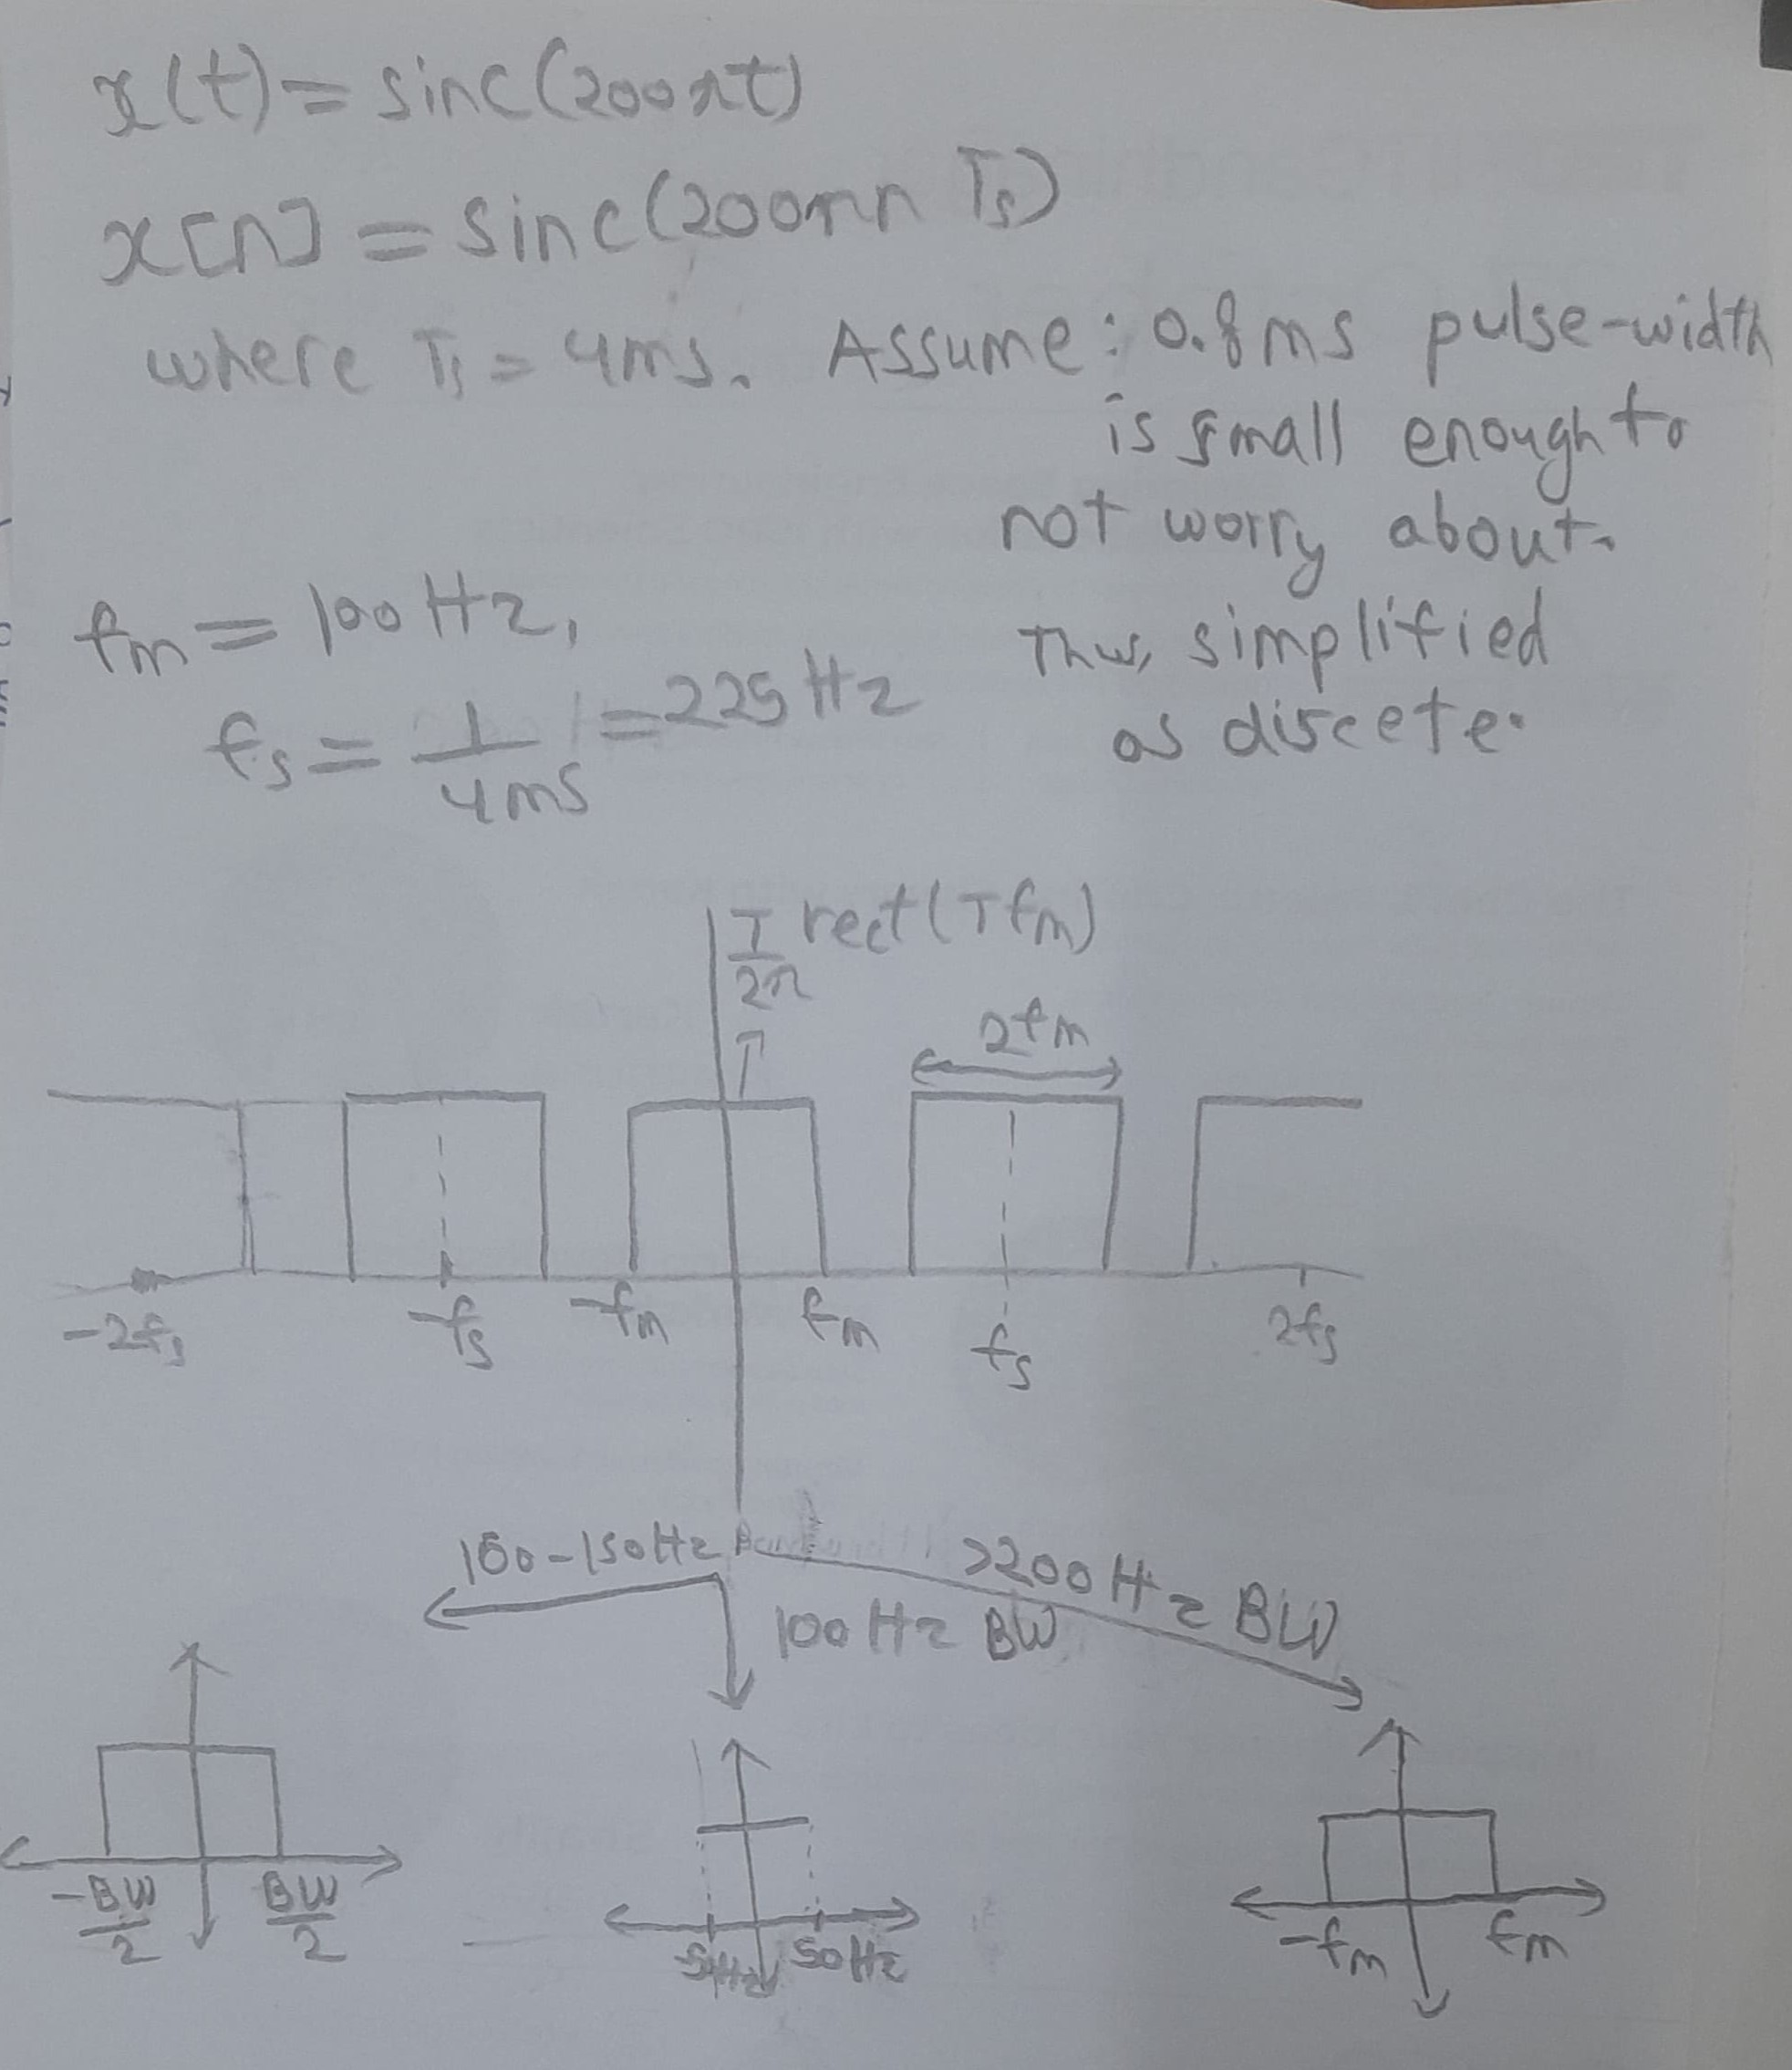 x(t) = sinc(200πt)
x[n] = sinc(200πn Ts)
where Ts = 4ms. Assume: 0.8ms pulse-width
is small enough to
not worry about.
Thus, simplified
as disceete.
fm = 100Hz,
fs = 1/4ms = 225Hz
T/2π rect(Tfm)
2fm
-2fs -fs -fm fm fs 2fs
100-150Hz >200Hz BW
100Hz BW
-BW/2 BW/2
50Hz
-fm fm